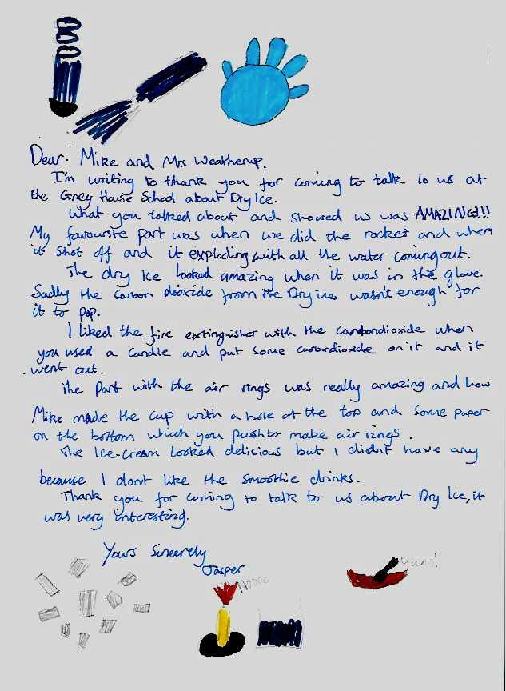 Dear. Mike and Mr Weatherup.
I'm writing to thank you for coming to talk to us at
the Grey House School about Dry Ice.
What you talked about and showed us was AMAZING!!!
My favourite part was when we did the rocket and when
it shot off and it exploding with all the water coming out.
The dry Ice looked amazing when it was in the glove.
Sadly the carbon dioxide from the Dry ice wasn't enough for
it to pop.
I liked the fire extinguisher with the carbondioxide when
you used a candle and put some carbondioxide on it and it
went out.
The Part with the air rings was really amazing and how
Mike made the cup with a hole at the top and some paper
on the bottom which you push to make air rings.
The Ice-cream looked delicious but I didn't have any
because I don't like the smoothie drinks.
Thank you for coming to talk to us about Dry Ice, it
was very interesting.
Yours Sincerely
Jasper